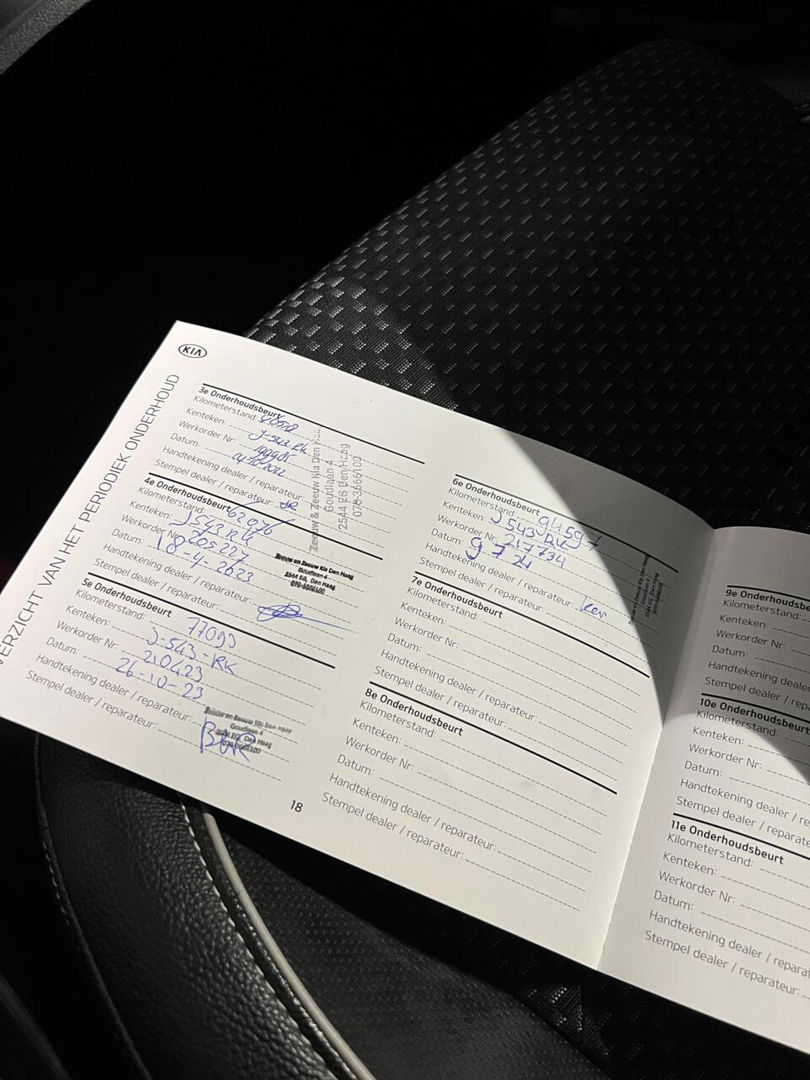 KIA
VERZICHT VAN HET PERIODIEK ONDERHOUD
3e Onderhoudsbeurt
Kilometerstand:
Kenteken:
Werkorder Nr:
Datum:
Handtekening dealer / reparateur:
Stempel dealer / reparateur:
Zeeuw & Zeeuw Kia Den
Goudlaan 4
2544 EG Den Haag
070-3666100
4e Onderhoudsbeurt
Kilometerstand: 62076
Kenteken: J543RK
Werkorder Nr: 205227
Datum: 18-4-2023
Handtekening dealer / reparateur:
Stempel dealer / reparateur:
Zeeuw en Zeeuw Kia Den Haag
Goudlaan 4
2544 EG, Den Haag
070-3666100
5e Onderhoudsbeurt
Kilometerstand: 77093
Kenteken: J-543-RK
Werkorder Nr: 210423
Datum: 26-10-23
Handtekening dealer / reparateur:
Stempel dealer / reparateur:
Zeeuw en Zeeuw Kia Den Haag
Goudlaan 4
2544 EG, Den Haag
070-3666100
18
6e Onderhoudsbeurt
Kilometerstand: 94597
Kenteken: J543RK
Werkorder Nr: 217734
Datum: 9 7 24
Handtekening dealer / reparateur:
Stempel dealer / reparateur:
7e Onderhoudsbeurt
Kilometerstand:
Kenteken:
Werkorder Nr:
Datum:
Handtekening dealer / reparateur:
Stempel dealer / reparateur:
8e Onderhoudsbeurt
Kilometerstand:
Kenteken:
Werkorder Nr:
Datum:
Handtekening dealer / reparateur:
Stempel dealer / reparateur:
9e Onderhoudsbe
Kilometerstand:
Kenteken:
Werkorder Nr:
Datum:
Handtekening dealer / re
Stempel dealer / repa
10e Onderhoudsbeurt
Kilometerstand:
Kenteken:
Werkorder Nr:
Datum:
Handtekening dealer / repa
Stempel dealer / reparate
11e Onderhoudsbeurt
Kilometerstand:
Kenteken:
Werkorder Nr:
Datum:
Handtekening dealer / reparat
Stempel dealer / reparateur: